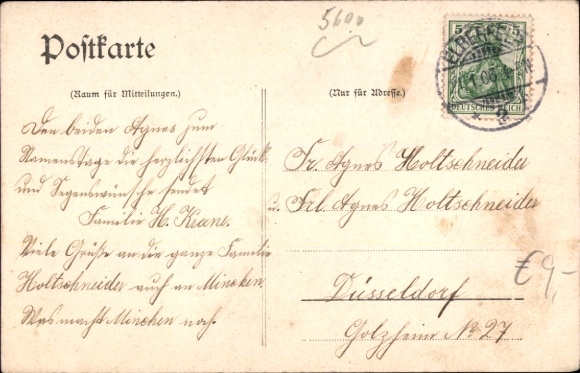 5600
Postkarte
(Raum für Mitteilungen.)
(Nur für Adresse.)
5 5
ELBERFELD
DEUTSCHES REICH
Den beiden Agnes zum
Namenstage die herzlichsten Glück-
und Segenswünsche sendet
Familie H. Krane.
Viele Grüße an die ganze Familie
Holtschneider auch an Minchen.
Was macht Minchen noch.
Fr. Agnes Holtschneider
u. Frl. Agnes Holtschneider
Düsseldorf
Golzheim No 27
€ 9,-